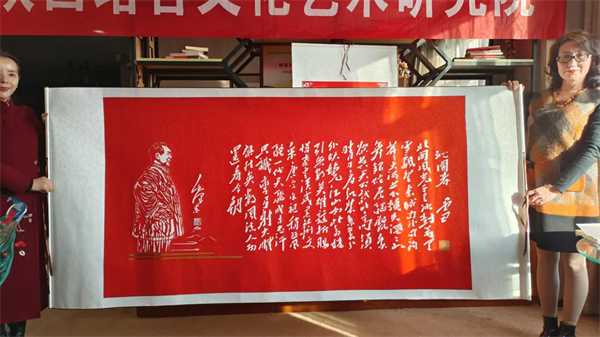 文化艺术研究院
沁园春 雪
北国风光千里冰封万里
雪飘望长城内外惟余莽
莽大河上下顿失滔滔山
舞银蛇原驰蜡象欲
与天公试比高须
晴日看红装素裹分
外妖娆江山如此多娇
引无数英雄竞折腰
惜秦皇汉武略输文
采唐宗宋祖稍逊风
骚一代天骄成吉思汗
只识弯弓射大雕
俱往矣数风流人物
还看今朝
毛泽东